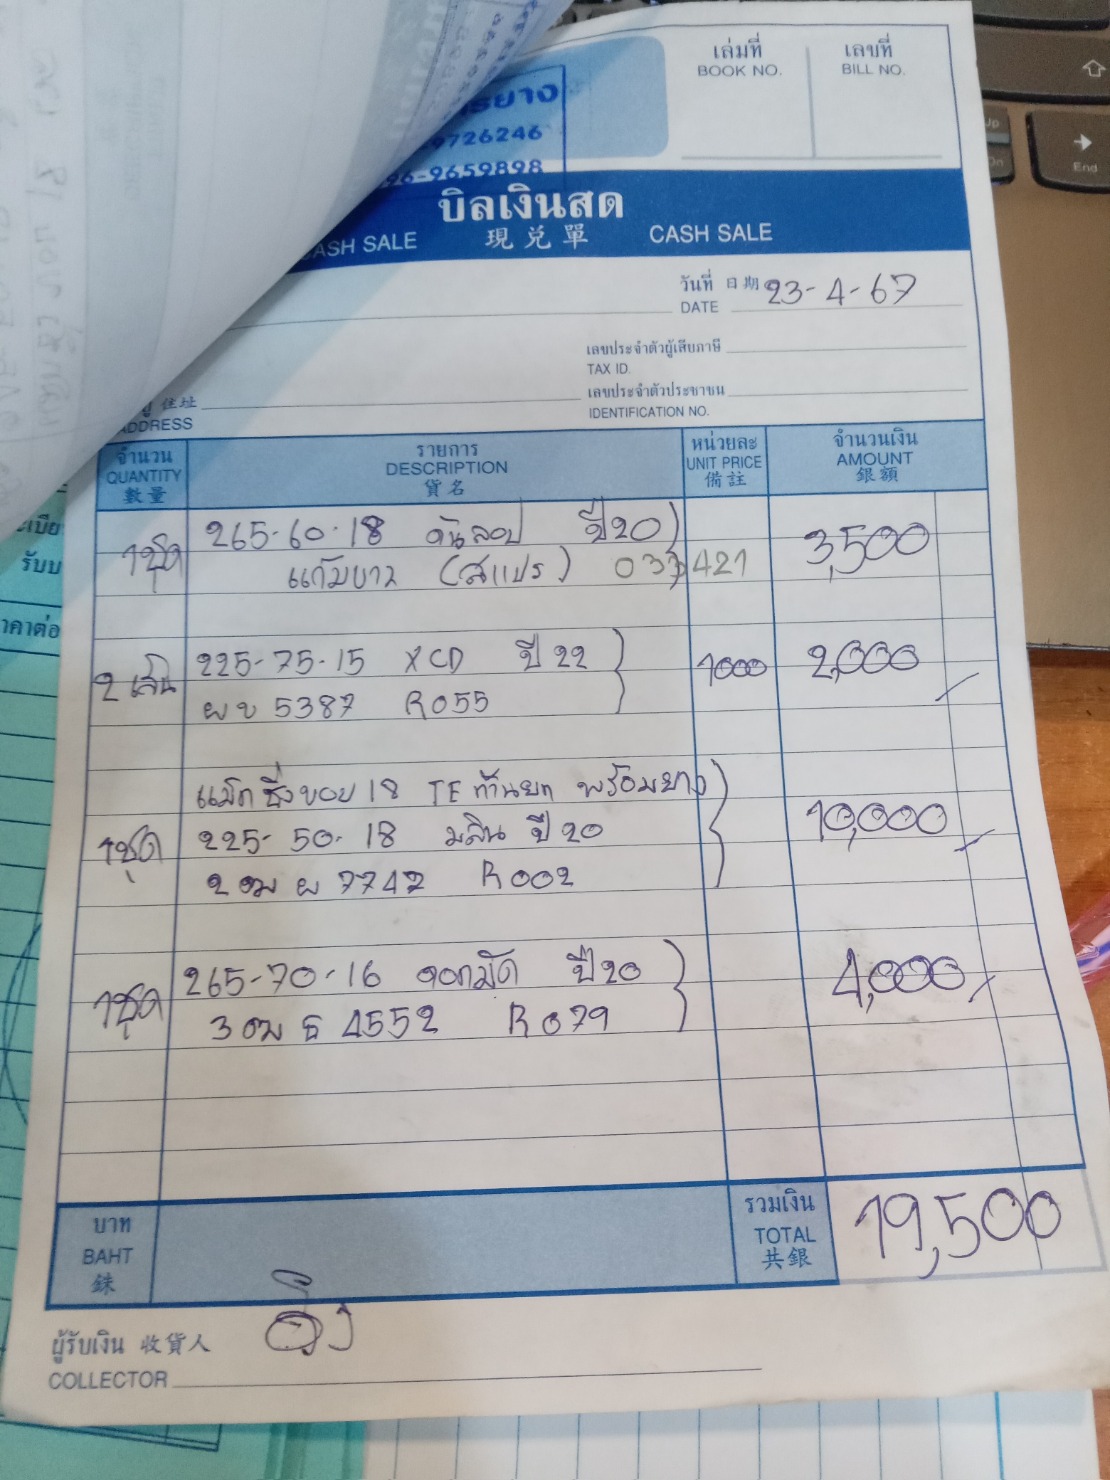 เล่มที่ เลขที่
BOOK NO. BILL NO.
รยาง
9726246
96-9659898
บิลเงินสด
CASH SALE 現兑單 CASH SALE
วันที่ 日期 23-4-67
DATE
เลขประจำตัวผู้เสียภาษี
TAX ID.
住址 เลขประจำตัวประชาชน
ADDRESS IDENTIFICATION NO.
จำนวน รายการ หน่วยละ จำนวนเงิน
QUANTITY DESCRIPTION UNIT PRICE AMOUNT
數量 貨名 備註 銀額
1ชุด 265-60-18 ดันลอป ปี20) 3,500
แก้มขาว (สแปร) 033421
2 เส้น 225-75-15 XCD ปี 22 1000 2,000
ผข 5387 R055
แม็กซิ่งขอบ 18 TE ก้านยก พร้อมยาง
1ชุด 225-50-18 มลิน ปี 20 10,000
2ฒผ 7747 R002
1ชุด 265-70-16 ปี20 4,000
3ฒธ 4552 R079
บาท รวมเงิน
BAHT TOTAL 19,500
銖 共銀
ผู้รับเงิน 收貨人
COLLECTOR
End
รับบ
าคาต่อ